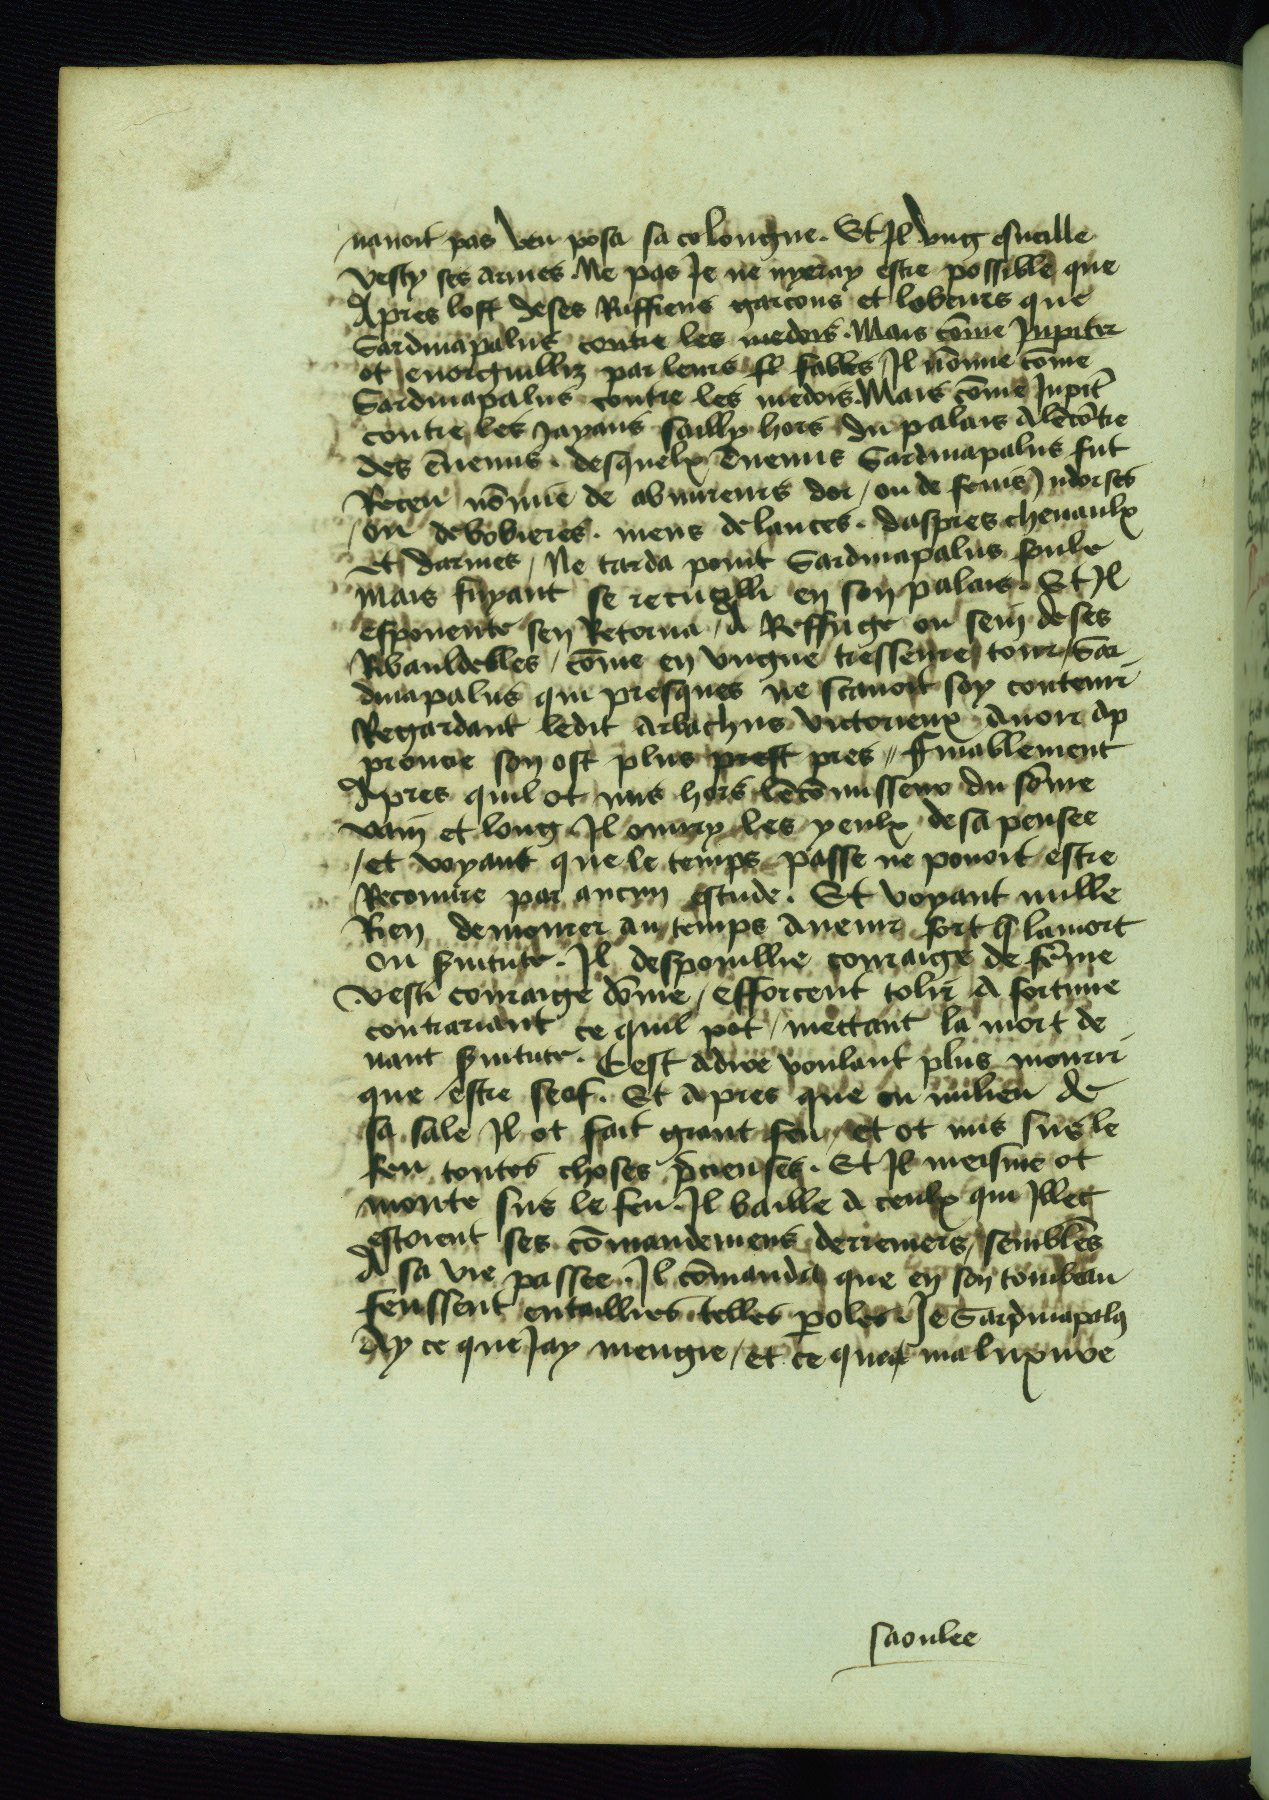 nauoit pas veu posa sa colongne. Et Jl vng esueille
vesty ses armes. Ne pas Je ne nyeray estre possible que
Apres lost de ses Ruffiens garcons et lobeurs que
Sardinapalus contre les medois. Mais cōme Jupiter
ot enorguilliz par leurs fl fables Jl nōme cōme
Sardinapalus contre les medois. Mais cōme Jupitr̄
contre les Jayans sailly hors du palais A lēcōtre
des ēnemis. desquelx ēnemis Sardinapalus fut
Receu nōmie de abuureurs dor / ou de
ou de bobieres. mens de lances. daspres cheuaulx
et darmes / Ne tarda point Sardinapalus
Mais fuyant se recueilli en son palais. Et Jl
espouente sen Retorna / A Reffuge ou sein de ses
Ribauldelles / cōme en vngne tresseure tour / Sar
dinapalus qui presques ne scauoit soy contenir
Regardant ledit Arbachus victorieux Auoir Ap
proucie son ost plus prest pres // ffinablement
Apres quil ot mis hors lēcōnisseur du sōme
vain et long. Jl ouury les yeulx de sa pensee
/ et voyant que le temps passe ne pouoit estre
Recouure par aucun estude. Et voyant nulle
Rien demourer au temps Auenir fort q̄ la mort
ou seruitute. Jl despouillie couraige de fēme
vesti couraige dōme / efforcent tolir A fortune
contrariant ce quil pot / mettant la mort de
uant seruitute. Cest Adire voulant plus mourir
que estre serf. Et Apres que ou milieu de
sa sale Jl ot fait grant feu / et ot mis sus le
feu toutes choses p̄cieuses. Et Jl meisme ot
monte sus le feu. Jl baille A ceulx qui Jllec
estoient ses cōmandemens derreniers / semblēs
A sa vie passee. Jl cōmanda que en son tombeau
feussent entaillies telles ꝑoles. Je Sardinapalꝰ
Ay ce que Jay mengie / et ce que ma luxure
saoulee